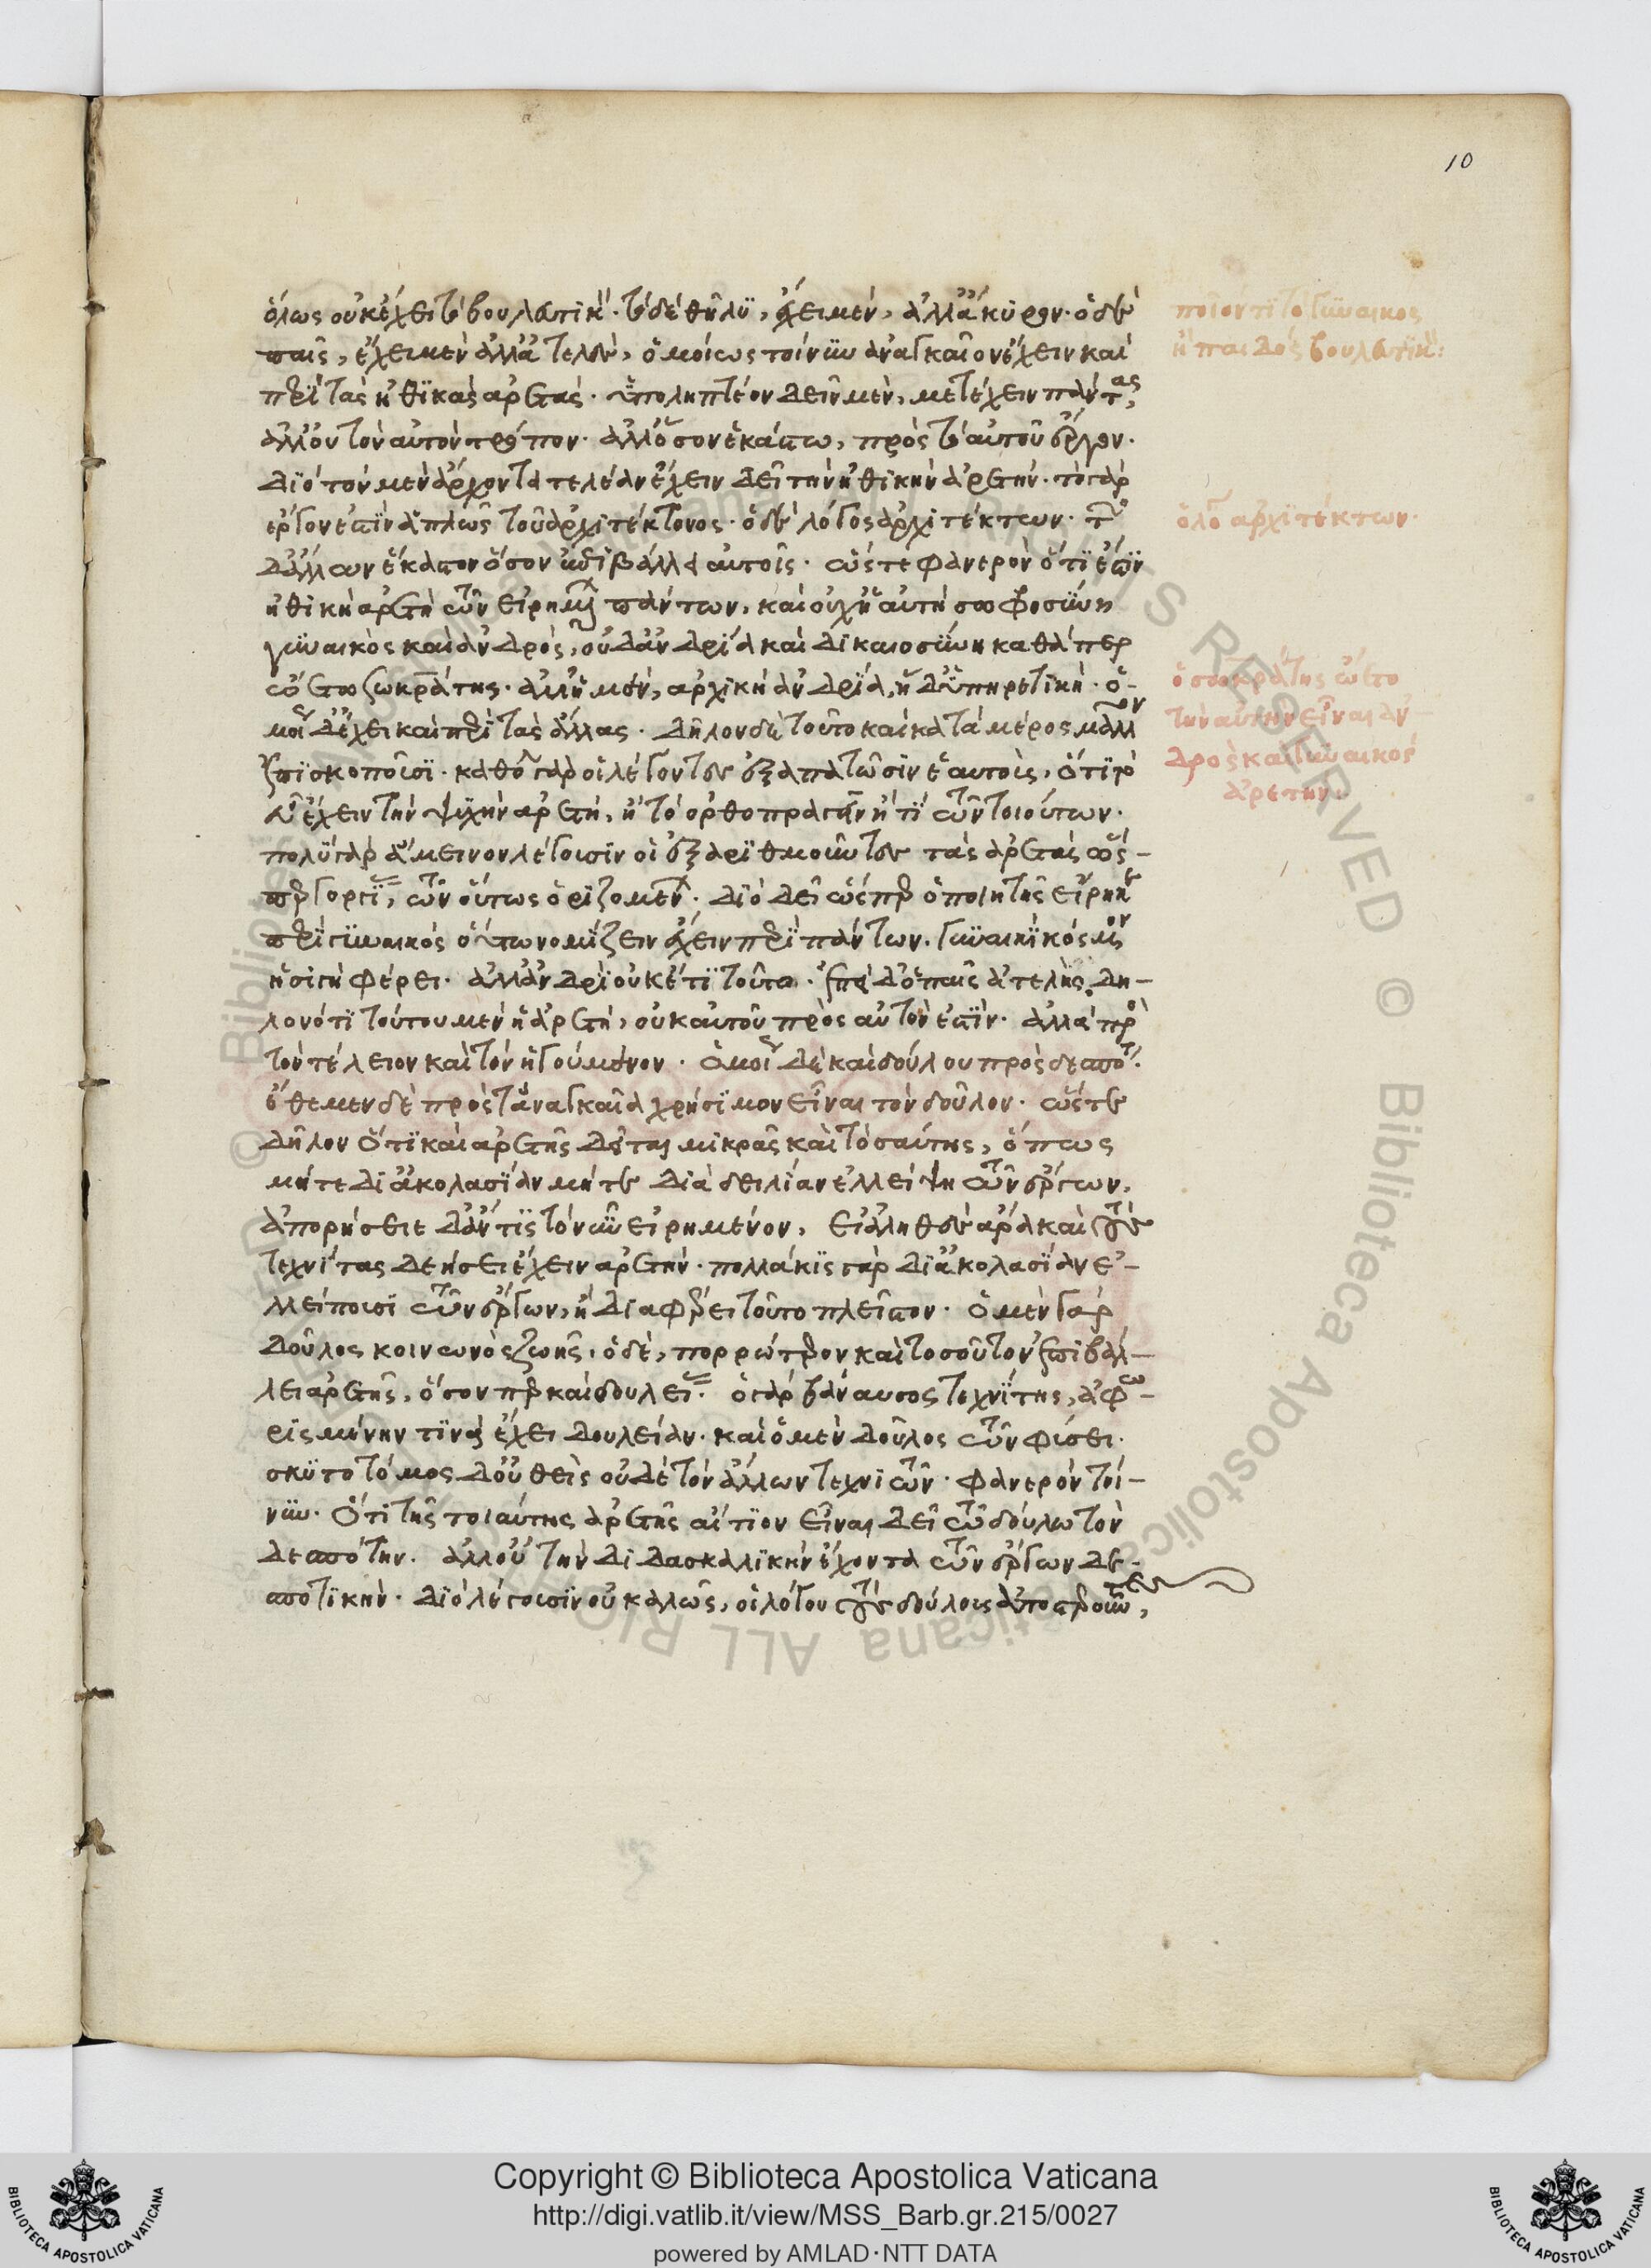 10
ὅλως οὐκ ἔχει τὸ βουλευτικὸν· τὸ δὲ θῆλυ, ἔχει μὲν, ἀλλ' ἄκυρον· ὁ δὲ
παῖς, ἔχει μὲν ἀλλ' ἀτελὲς, ὁμοίως τοίνυν ἀναγκαῖον ἔχειν καὶ
περὶ τὰς ἠθικὰς ἀρετάς· ὑποληπτέον δεῖν μὲν, μετέχειν πάντας,
ἀλλ' οὐ τὸν αὐτὸν τρόπον· ἀλλ' ὅσον ἑκάστω, πρὸς τὸ αὐτοῦ ἔργον·
διὸ τὸν μὲν ἄρχοντα τελέαν ἔχειν δεῖ τὴν ἠθικὴν ἀρετήν· τὸ γὰρ
ἔργον ἐστὶν ἁπλῶς τοῦ ἀρχιτέκτονος· ὁ δὲ λόγος ἀρχιτέκτων· τῶν
δ' ἄλλων ἕκαστον ὅσον ἐπιβάλλει αὐτοῖς· ὥστε φανερὸν ὅτι ἐστὶν
ἠθικὴ ἀρετὴ τῶν εἰρημένων πάντων, καὶ οὐχ ἡ αὐτὴ σωφροσύνη
γυναικὸς καὶ ἀνδρὸς, οὐδ' ἀνδρία καὶ δικαιοσύνη καθάπερ
ᾤετο σωκράτης· ἀλλ' ἡ μὲν, ἀρχικὴ ἀνδρία, ἡ δ' ὑπηρετική· ὁ-
μοίως δ' ἔχει καὶ περὶ τὰς ἄλλας· δῆλον δὲ τοῦτο καὶ κατὰ μέρος μᾶλλον
ἐπισκοποῦσι· καθόλου γὰρ οἱ λέγοντες ἐξαπατῶσιν ἑαυτοὺς, ὅτι τὸ
εὖ ἔχειν τὴν ψυχὴν ἀρετὴ, ἢ τὸ ὀρθοπραγεῖν ἤ τι τῶν τοιούτων·
πολὺ γὰρ ἄμεινον λέγουσιν οἱ ἐξαριθμοῦντες τὰς ἀρετὰς ὥς-
περ γοργίας, τῶν οὕτως ὁριζομένων· διὸ δεῖ ὥσπερ ὁ ποιητὴς εἴρηκε
περὶ γυναικὸς οὕτω νομίζειν ἔχειν περὶ πάντων. γυναικὶ κόσμον
ἡ σιγὴ φέρει· ἀλλ' ἀνδρὶ οὐκέτι τοῦτο· ἐπεὶ δ' ὁ παῖς ἀτελὴς, δη-
λονότι τούτου μὲν ἡ ἀρετὴ, οὐκ αὐτοῦ πρὸς αὐτὸν ἐστὶν· ἀλλὰ πρὸς
τὸν τέλειον καὶ τὸν ἡγούμενον· ὁμοίως δὲ καὶ δούλου πρὸς δεσπότην·
ἔθεμεν δὲ πρὸς τἀναγκαῖα χρήσιμον εἶναι τὸν δοῦλον· ὥστε
δῆλον ὅτι καὶ ἀρετῆς δεῖται μικρᾶς καὶ τοσαύτης, ὅπως
μήτε δι' ἀκολασίαν μήτε διὰ δειλίαν ἐλλείψη τῶν ἔργων,
ἀπορήσειε δ' ἄν τις τὸ νῦν εἰρημένον, εἰ ἀληθὲς ἆρα καὶ τοὺς
τεχνίτας δεήσει ἔχειν ἀρετήν· πολλάκις γὰρ δι' ἀκολασίαν ἐ-
λλείπουσι τῶν ἔργων, ἢ διαφέρει τοῦτο πλεῖστον· ὁ μὲν γὰρ
δοῦλος κοινωνὸς ζωῆς· ὁ δὲ, πορρώτερον καὶ τοσοῦτον ἐπιβάλ-
λει ἀρετῆς, ὅσον περ καὶ δουλείας· ὁ γὰρ βάναυσος τεχνίτης, ἀφω-
ρισμένην τινὰ ἔχει δουλείαν· καὶ ὁ μὲν δοῦλος τῶν φύσει·
σκυτοτόμος δ' οὐθεὶς οὐδὲ τῶν ἄλλων τεχνιτῶν· φανερὸν τοί-
νυν· ὅτι τῆς τοιαύτης ἀρετῆς αἴτιον εἶναι δεῖ τῶ δούλω τὸν
δεσπότην. ἀλλ' οὐ τὴν διδασκαλικὴν ἔχοντα τῶν ἔργων δε-
σποτικήν· διὸ λέγουσιν οὐ καλῶς, οἱ λόγου τοὺς δούλους ἀποστεροῦντες,
ποῖόν τι τὸ γυναικὸς
ἢ παιδὸς βουλευτικόν:
ὁ λόγος ἀρχιτέκτων·
ὁ σωκράτης ᾤετο
τὴν αὐτὴν εἶναι ἀν-
δρὸς καὶ γυναικὸς
ἀρετήν:
Copyright © Biblioteca Apostolica Vaticana
http://digi.vatlib.it/view/MSS_Barb.gr.215/0027
powered by AMLAD·NTT DATA
BIBLIOTECA APOSTOLICA VATICANA
BIBLIOTECA APOSTOLICA VATICANA